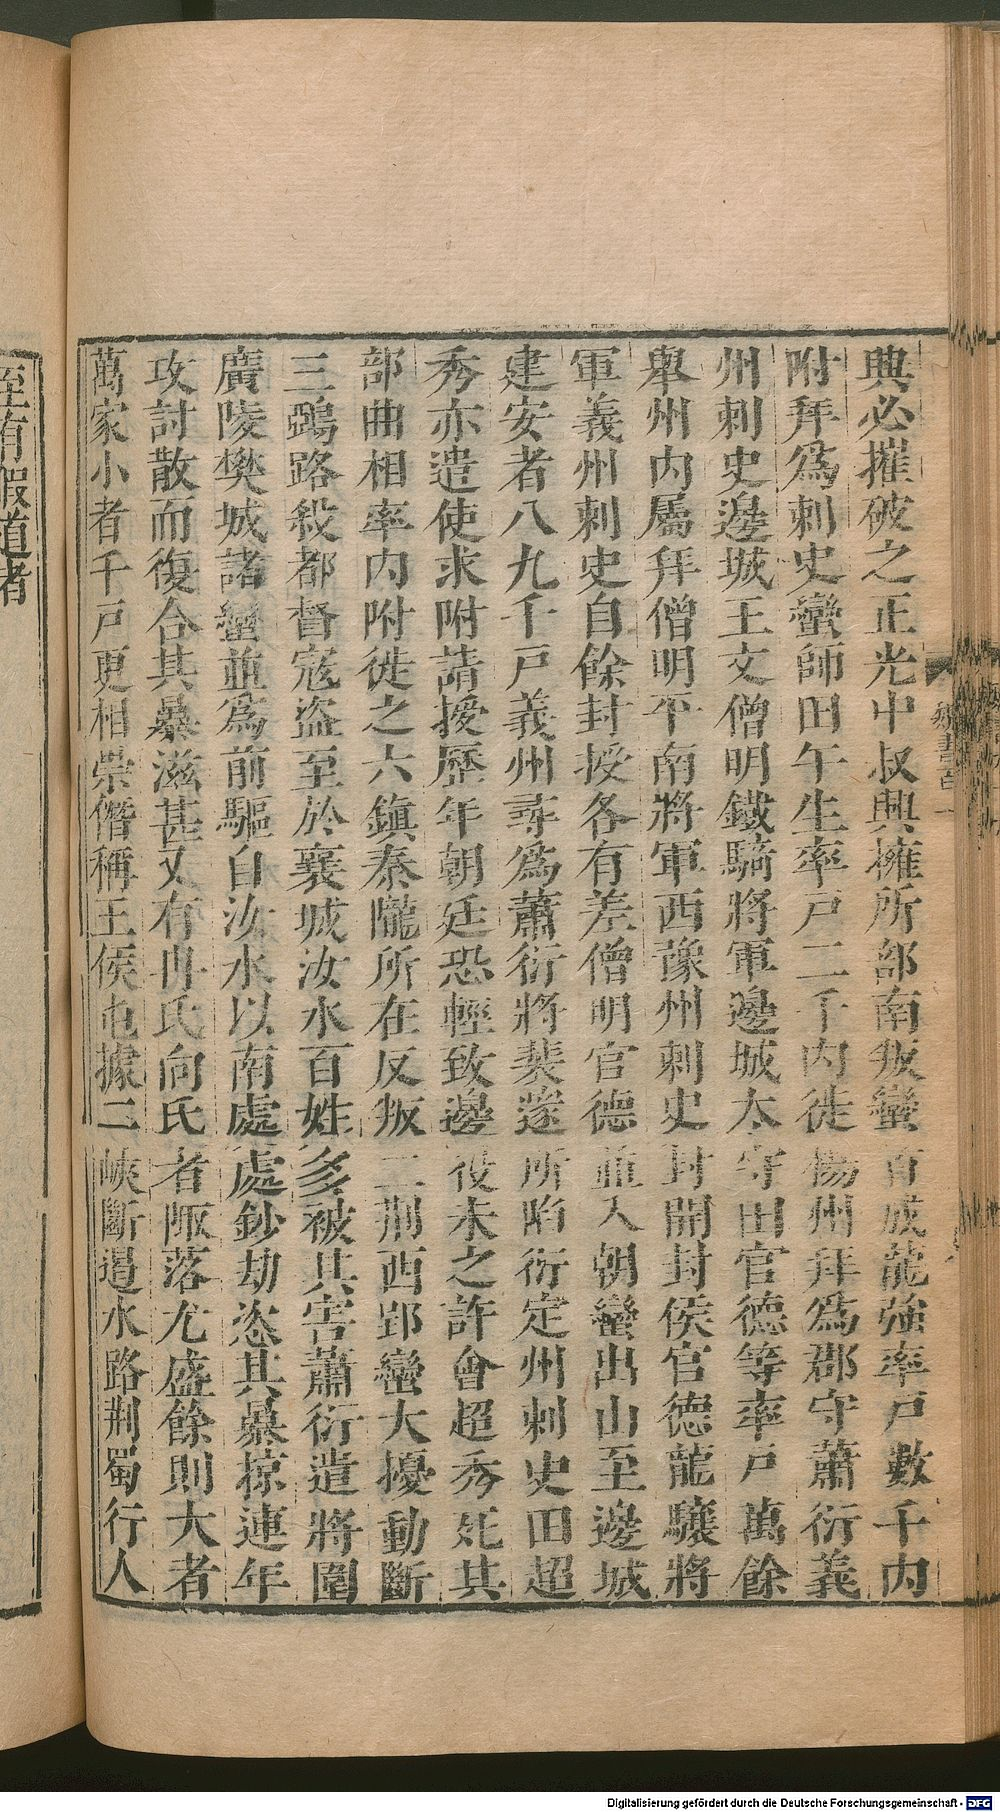 興必摧破之正光中叔興擁所部南叛蠻首成龍強率戶數千內
附拜爲刺史蠻師田午生率戶二千內徙揚州拜爲郡守蕭衍義
州刺史邊城王文僧明鐵騎將軍邊城太守田官德等率戶萬餘
舉州內屬拜僧明平南將軍西豫州刺史封開封侯官德龍驤將
軍義州刺史自餘封授各有差僧明官德並入朝蠻出山至邊城
建安者八九千戶義州尋爲蕭衍將裴邃所陷衍定州刺史田超
秀亦遣使求附請援歷年朝廷恐輕致邊役未之許會超秀死其
部曲相率內附徙之六鎮秦隴所在反叛二荊西郢蠻大擾動斷
三鵶路殺都督寇盜至於襄城汝水百姓多被其害蕭衍遣將圍
廣陵樊城諸蠻並爲前驅自汝水以南處處鈔劫恣其暴掠連年
攻討散而復合其暴滋甚又有冉氏向氏者陬落尤盛餘則大者
萬家小者千戶更相崇僭稱王侯屯據三峽斷遏水路荊蜀行人
至有假道者
魏書百一
Digitalisierung gefördert durch die Deutsche Forschungsgemeinschaft - DFG